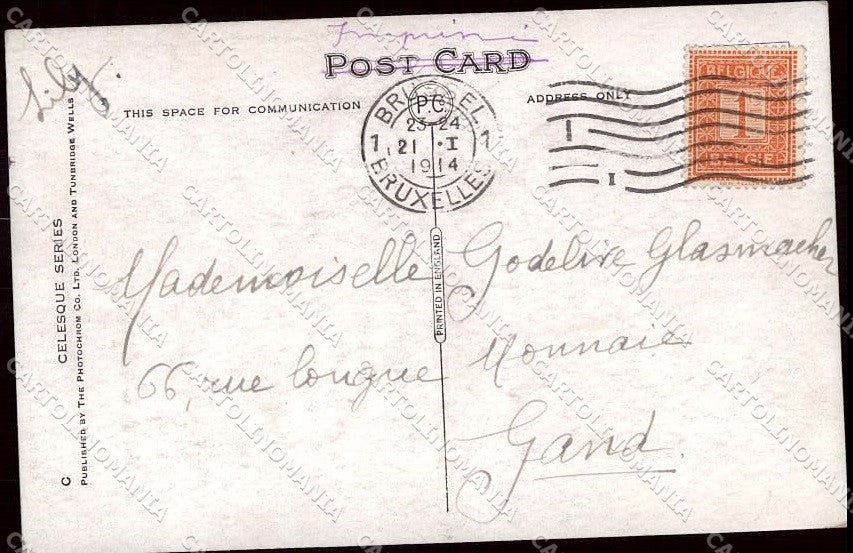 Imprimé
POST CARD
Lily.
THIS SPACE FOR COMMUNICATION
ADDRESS ONLY
BRUSSEL
P.C.
23-24
1 21 · I 1
1914
BRUXELLES
I
I
BELGIQUE
1
BELGIË
Mademoiselle Godelive Glasmacher
66, rue longue Monnaie
Gand.
PRINTED IN ENGLAND
C CELESQUE SERIES
PUBLISHED BY THE PHOTOCHROM CO. LTD. LONDON AND TUNBRIDGE WELLS
CARTOLINOMANIA